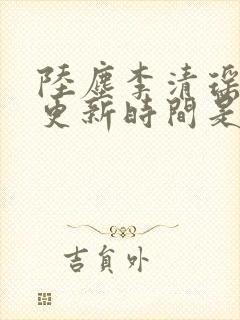 陸塵李清瑤
更新時間是
吉負外